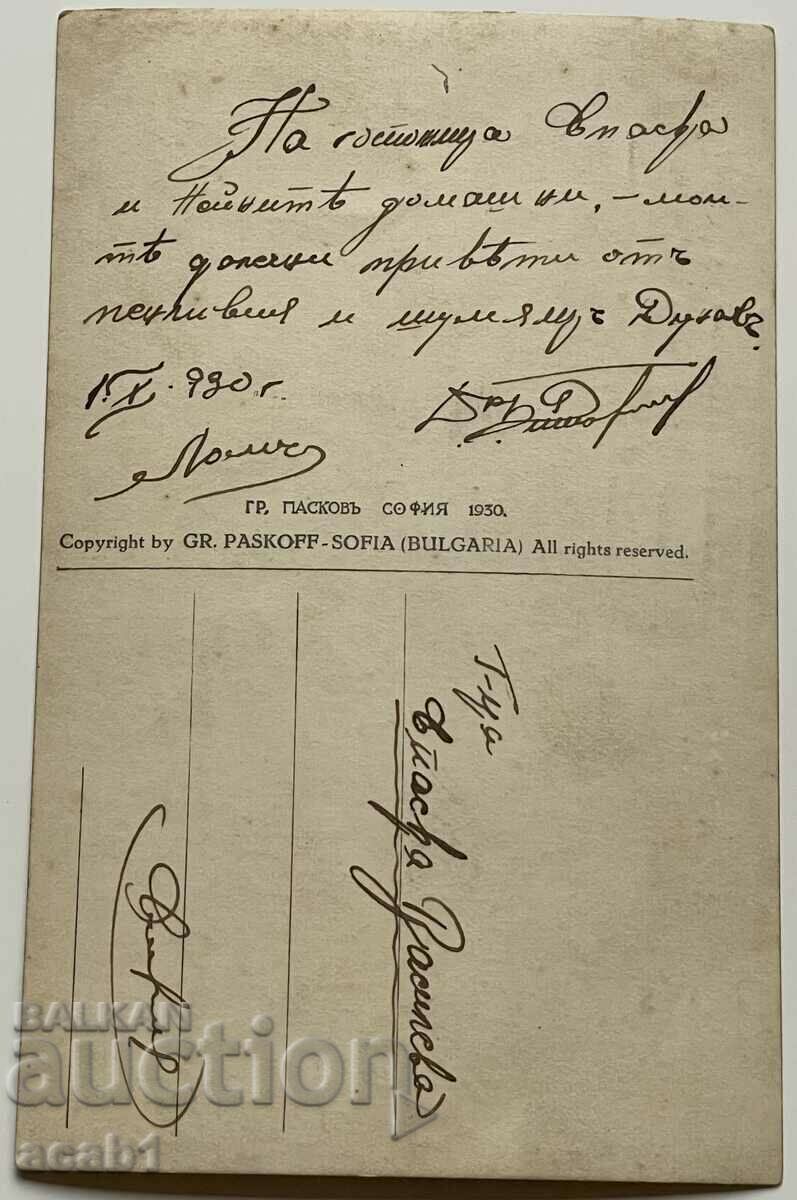 На госпожица
и нейнитѣ домашни, – мои-
тѣ далечни привѣти отъ
и шумящъ Дунавъ.
1.X.930 г.
Ломъ
ГР. ПАСКОВЪ СОФИЯ 1930.
Copyright by GR. PASKOFF-SOFIA (BULGARIA) All rights reserved.
Г-ца
Василева
BALKAN
auction
acab1